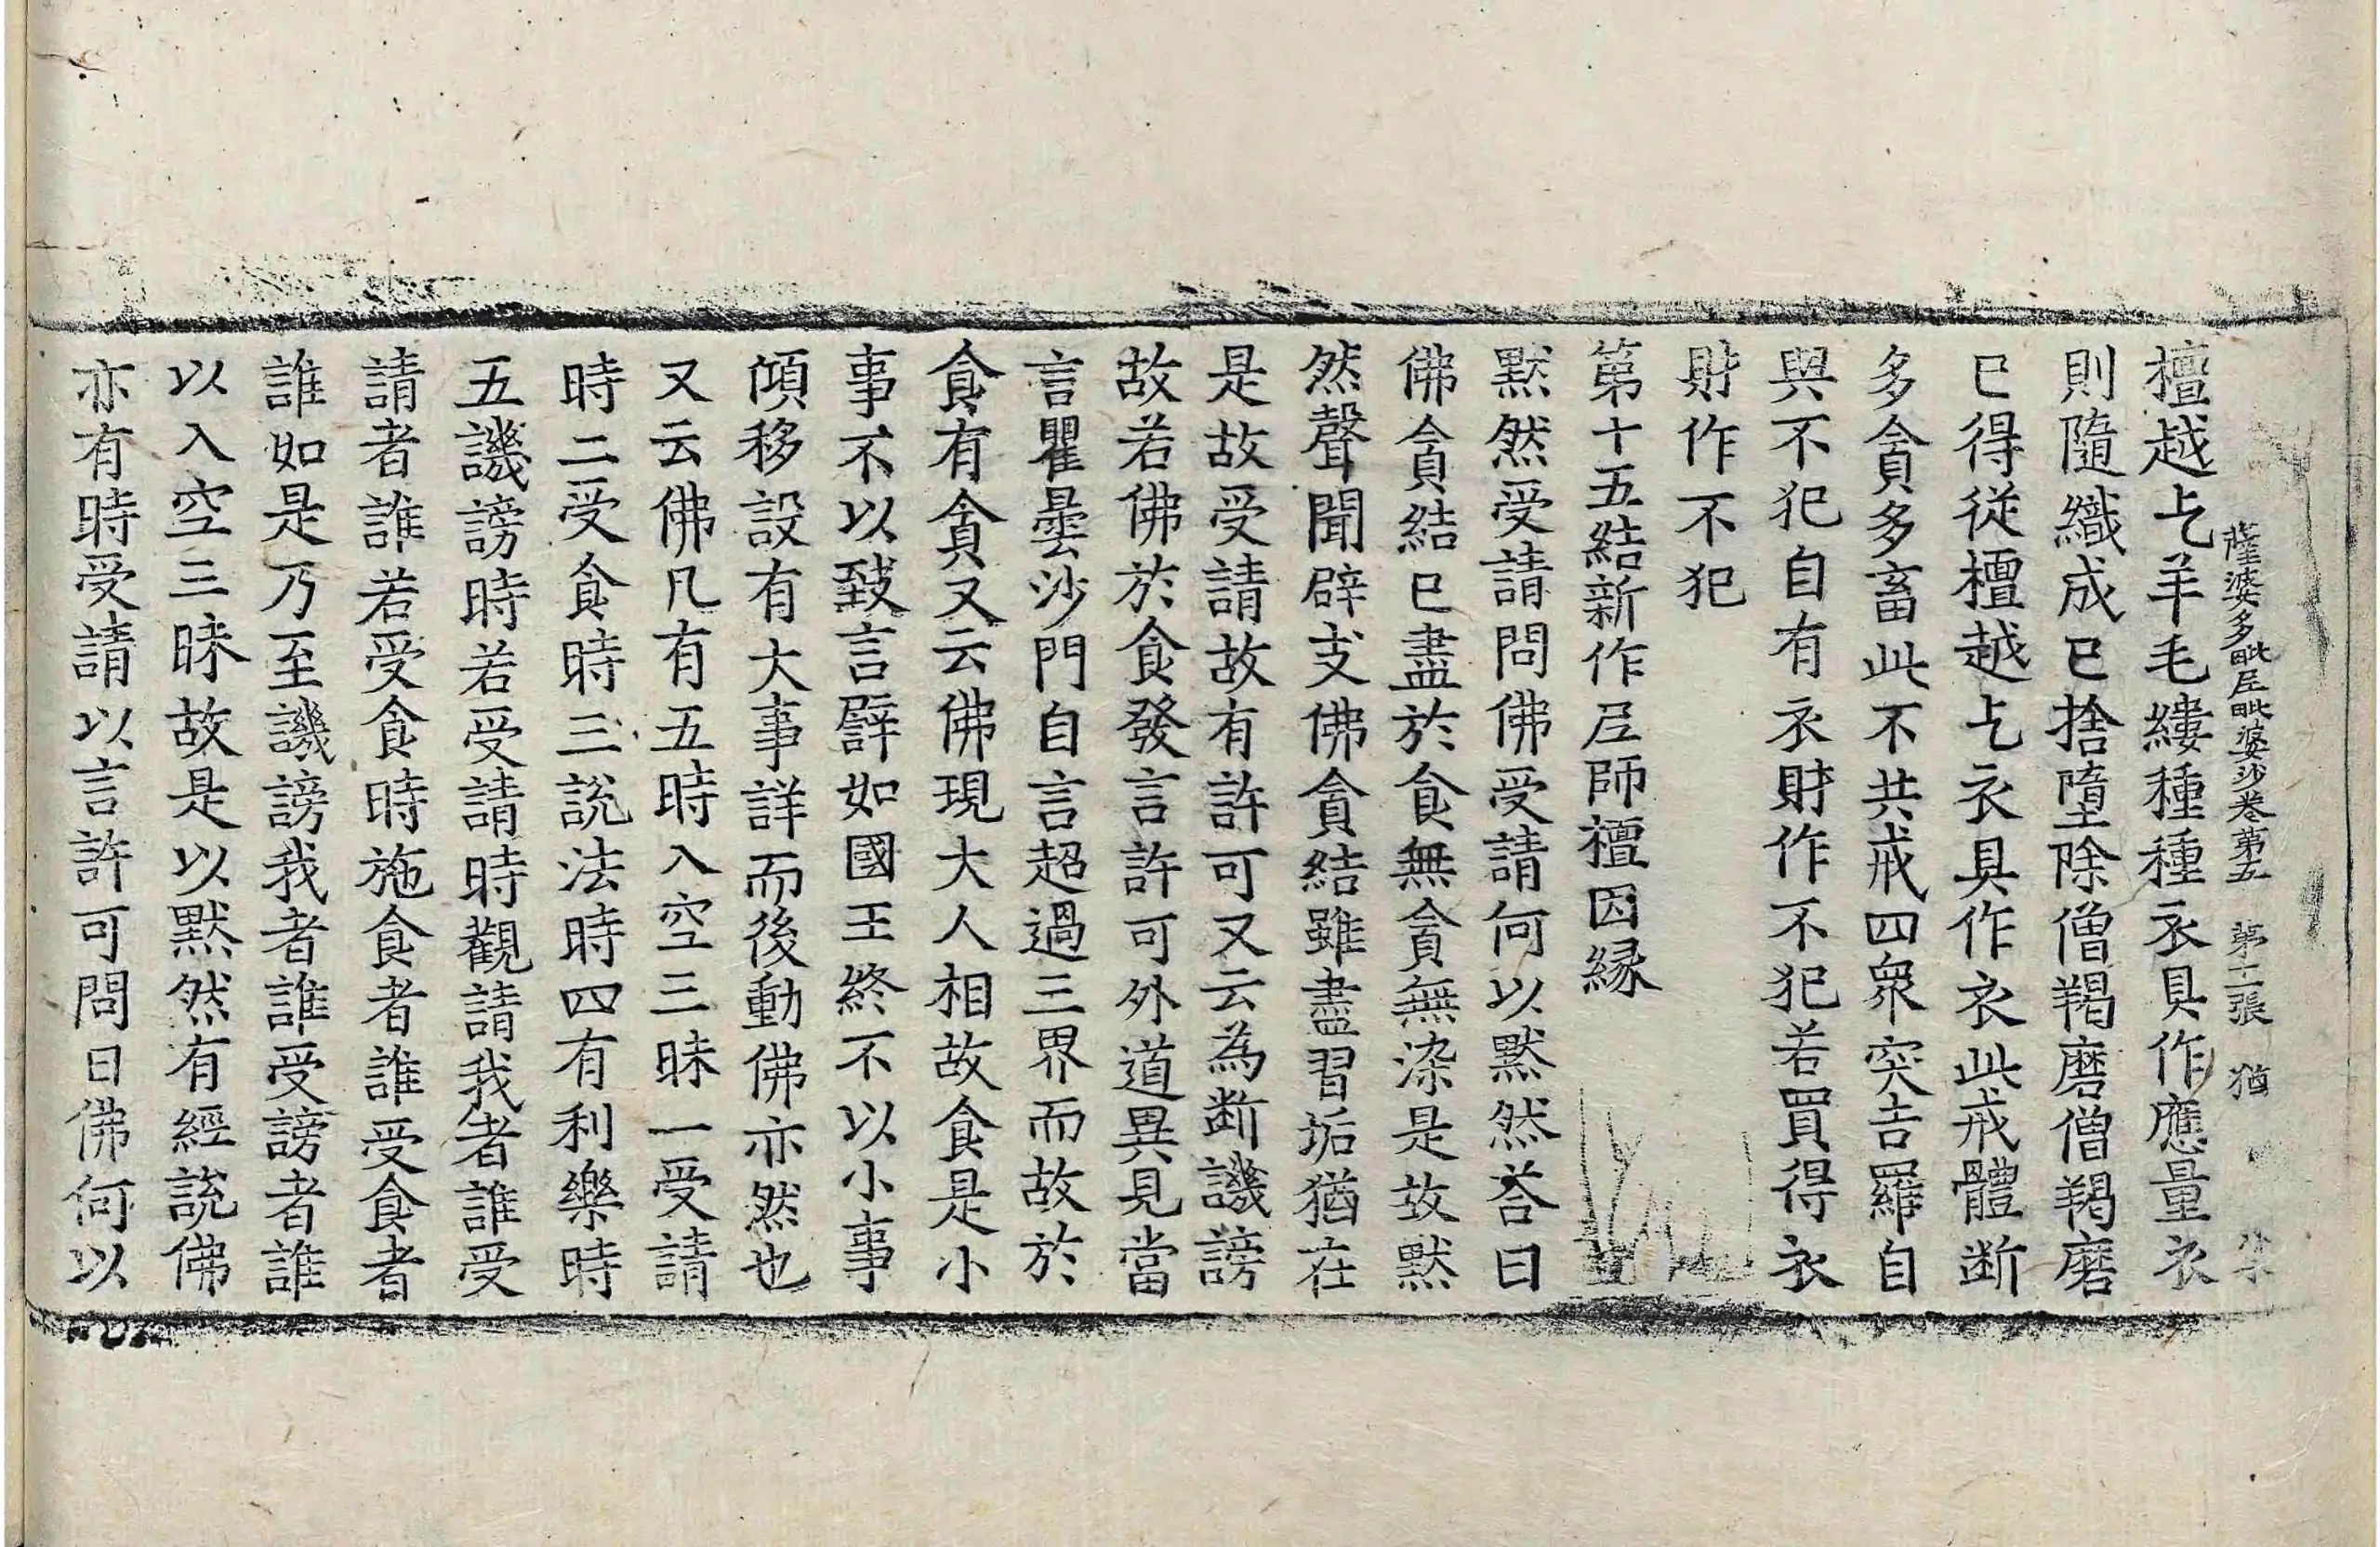 薩婆多毗尼毗婆沙卷第五　第二張　猶
檀越乞羊毛縷種種衣具作應量衣
則隨織成已捨墮除僧羯磨僧羯磨
已得從檀越乞衣具作衣此戒體断
多貪多畜此不共戒四衆突吉羅自
與不犯自有衣財作不犯若買得衣
財作不犯
第十五結新作尼師檀因縁
默然受請問佛受請何以默然荅曰
佛貪結已盡於食無貪無染是故默
然聲聞辟支佛貪結雖盡習垢猶在
是故受請故有許可又云為断譏謗
故若佛於食發言許可外道異見當
言瞿曇沙門自言超過三界而故於
食有貪又云佛現大人相故食是小
事不以致言譬如國王終不以小事
傾移設有大事詳而後動佛亦然也
又云佛凡有五時入空三昧一受請
時二受食時三說法時四有利樂時
五譏謗時若受請時觀請我者誰受
請者誰若受食時施食者誰受食者
誰如是乃至譏謗我者誰受謗者誰
以入空三昧故是以默然有經說佛
亦有時受請以言許可問曰佛何以